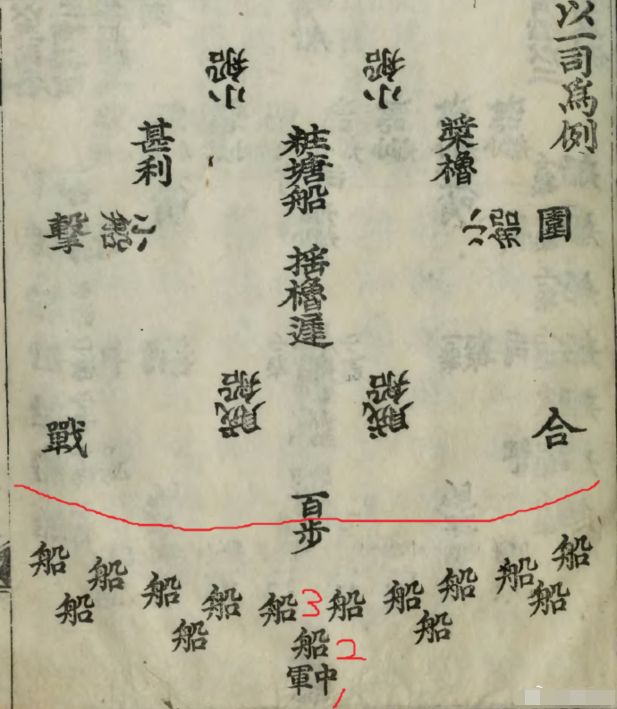 以一司爲例
圍
合
小船
槳櫓
小船
戰船
粧塘船
搖櫓遲
百步
小船
戰船
甚利
小船
擊
戰
船
船
船
船
船
船
船
3
船
船
船
船
船
船
船
船
2
中軍
1